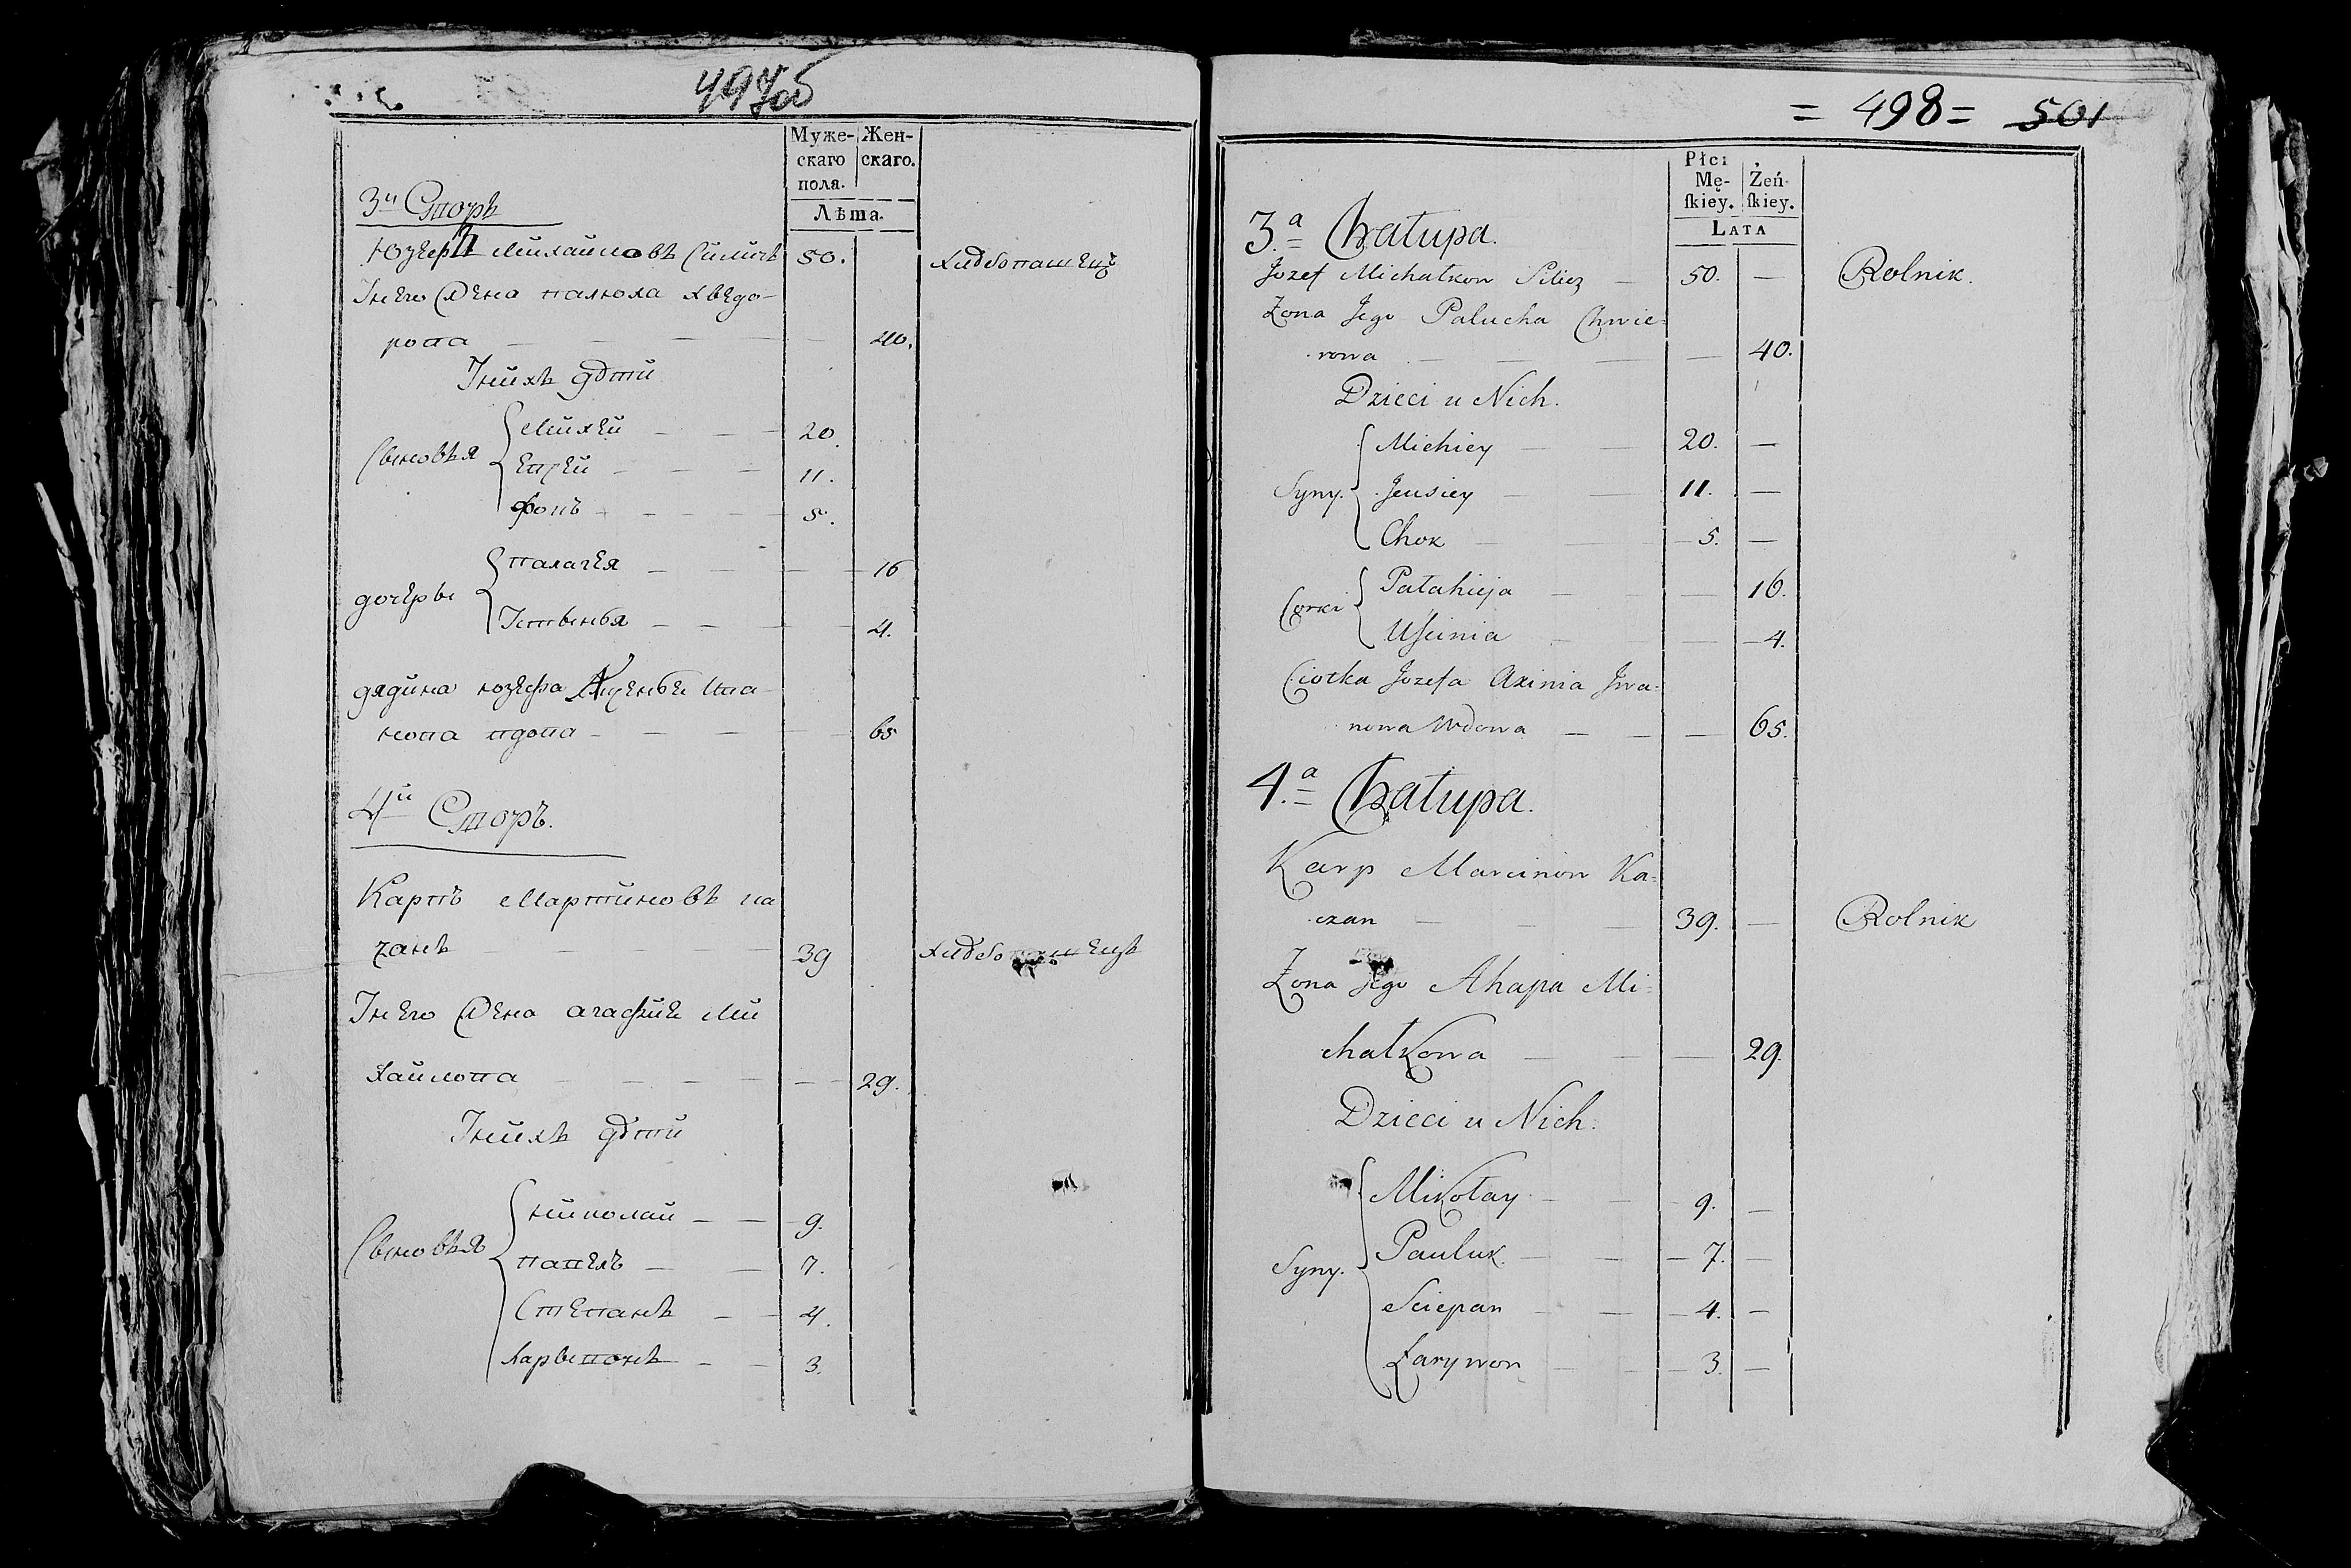 497об
Муже- Жен-
скаго скаго.
пола.
Лѣта.
3й Сторъ
Юзефъ Михайловъ Силичъ 50. хлѣбопашецъ
У него жена палюха хведо-
рова 40.
У нихъ дѣти
Сыновья
Михей 20.
Евсей 11.
фокъ 5.
дочеры
палагея 16
Устиньѣя 4.
дядина юзефа Аксеньѣе Ива
нова вдова 65
4й Сторъ.
Карпъ Мартиновъ ка
чанъ 39 хлѣбопашецъ
У него жена агафие Ми
хайлова 29.
У нихъ дѣти
Сыновья
николай 9.
павелъ 7.
Степанъ 4.
Ларывонъ 3.
= 498 = 501
Płci
Mę- Żeń-
ſkiey. ſkiey.
LATA
3.a Chałupa.
Jozef Michałkow Silicz — 50. — Rolnik.
Zona Jego Palucha Chwie=
rowa — 40.
Dzieci u Nich.
Syny.
Michiey 20. —
Jeusiey 11. —
Chok 5. —
Corki
Pałahieja 16.
Uſcinia 4.
Ciotka Jozefa Axinia Jwa=
nowa Wdowa — 65.
4.a Chałupa.
Karp Marcinow Ka=
czan 39. — Rolnik
Zona Jego Ahapa Mi=
chałkowa — 29.
Dzieci u Nich.
Syny.
Mikołay 9. —
Pauluk 7. —
Sciepan 4. —
Łarywon 3. —